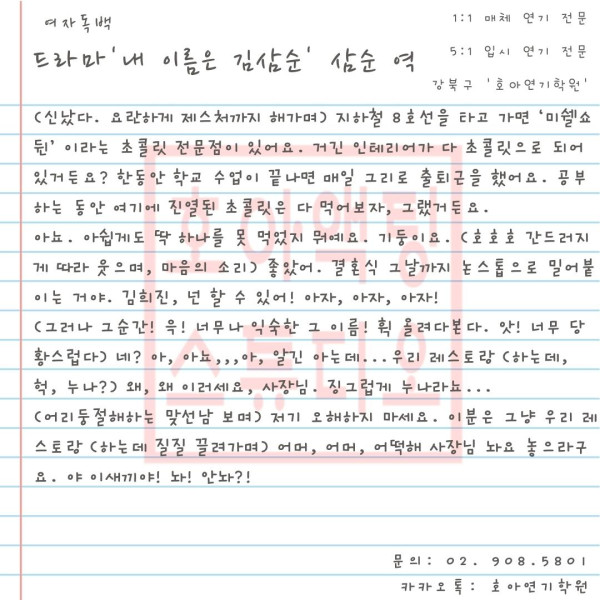 여자독백
1:1 매체 연기 전문
드라마'내 이름은 김삼순' 삼순 역
5:1 입시 연기 전문
강북구 '호아연기학원'
(신났다. 요란하게 제스처까지 해가며) 지하철 8호선을 타고 가면 '미쉘쇼
뒨' 이라는 초콜릿 전문점이 있어요. 거긴 인테리어가 다 초콜릿으로 되어
있거든요? 한동안 학교 수업이 끝나면 매일 그리로 출퇴근을 했어요. 공부
하는 동안 여기에 진열된 초콜릿은 다 먹어보자, 그랬거든요.
아뇨. 아쉽게도 딱 하나를 못 먹었지 뭐예요. 기둥이요. (호호호 간드러지
게 따라 웃으며, 마음의 소리) 좋았어. 결혼식 그날까지 논스톱으로 밀어붙
이는 거야. 김희진, 넌 할 수 있어! 아자, 아자, 아자!
(그러나 그순간! 윽! 너무나 익숙한 그 이름! 획 올려다본다. 앗! 너무 당
황스럽다) 네? 아, 아뇨,,,아, 알긴 아는데...우리 레스토랑 (하는데,
헉, 누나?) 왜, 왜 이러세요, 사장님. 징그럽게 누나라뇨...
(어리둥절해하는 맞선남 보며) 저기 오해하지 마세요. 이분은 그냥 우리 레
스토랑 (하는데 질질 끌려가며) 어머, 어머, 어떡해 사장님 놔요 놓으라구
요. 야 이새끼야! 놔! 안놔?!
호아액팅
스튜디오
문의: 02. 908.5801
카카오톡: 호아연기학원